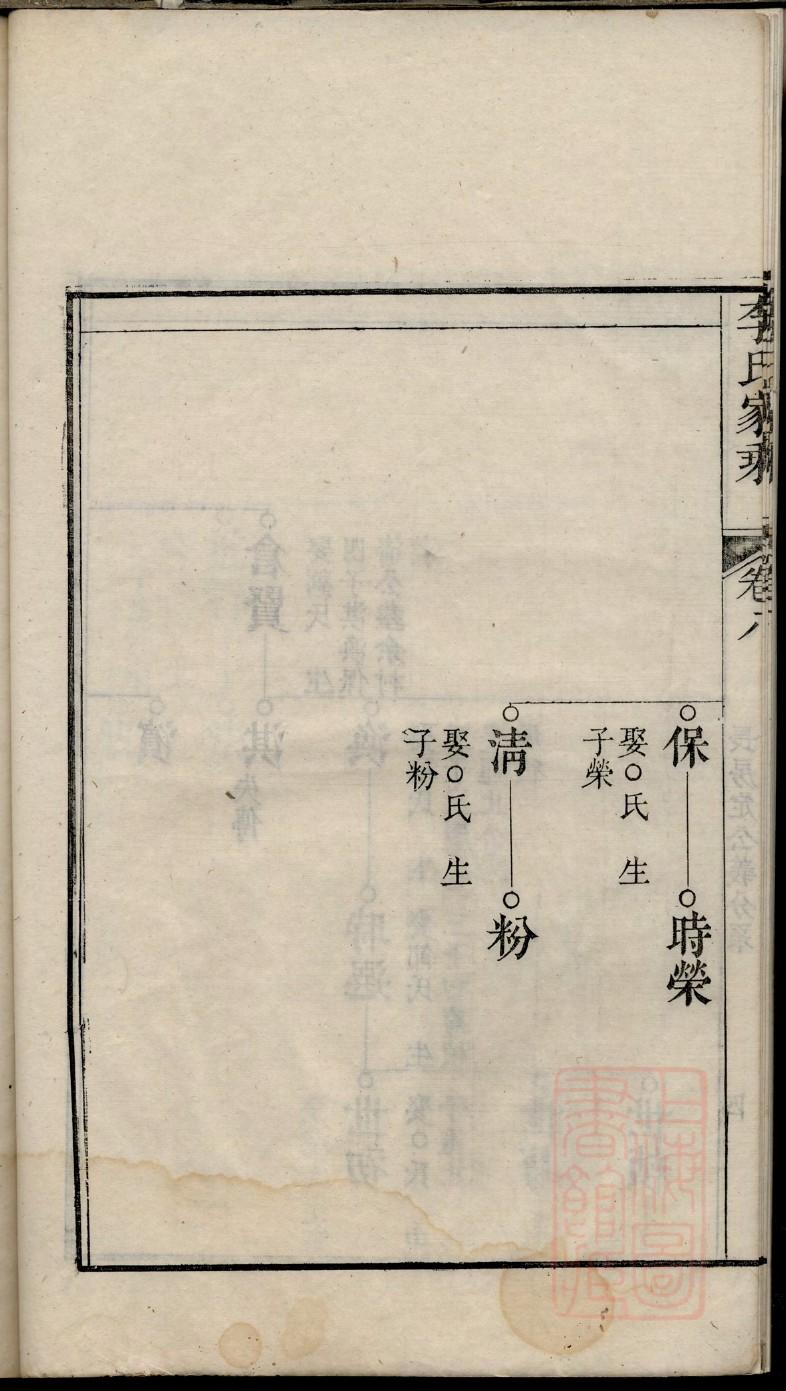 李氏家乘
卷六
保
娶○氏　生
子榮
時榮
清
娶○氏　生
子粉
粉
上海圖書館藏